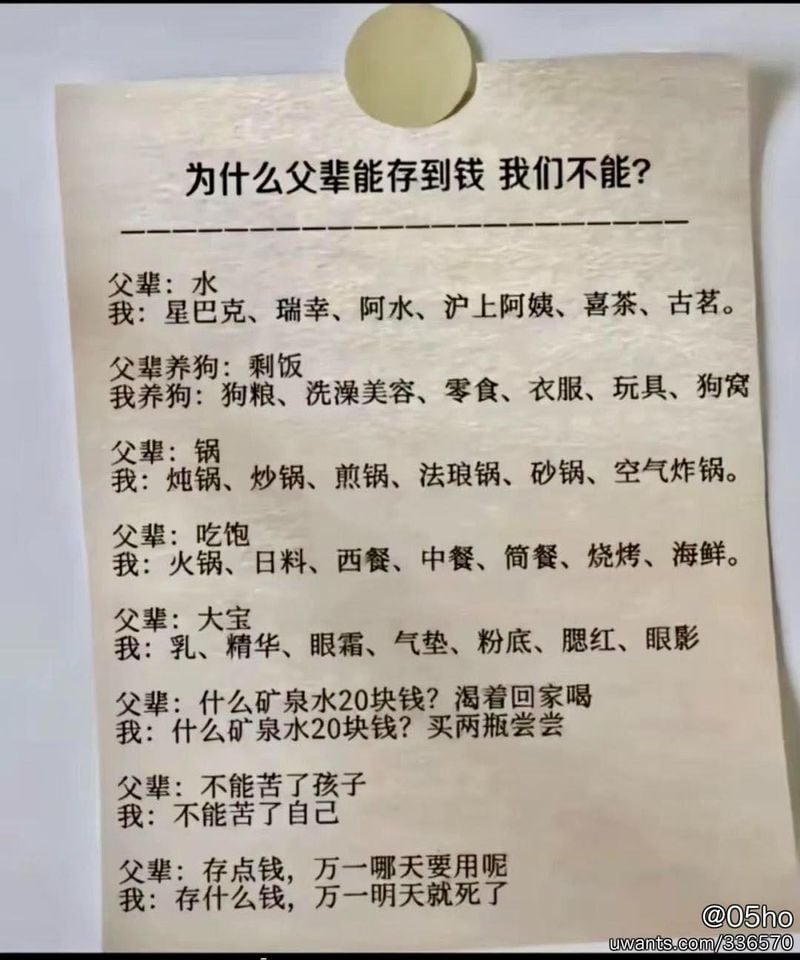 为什么父辈能存到钱 我们不能?
父辈：水
我：星巴克、瑞幸、阿水、沪上阿姨、喜茶、古茗。
父辈养狗：剩饭
我养狗：狗粮、洗澡美容、零食、衣服、玩具、狗窝
父辈：锅
我：炖锅、炒锅、煎锅、法琅锅、砂锅、空气炸锅。
父辈：吃饱
我：火锅、日料、西餐、中餐、简餐、烧烤、海鲜。
父辈：大宝
我：乳、精华、眼霜、气垫、粉底、腮红、眼影
父辈：什么矿泉水20块钱？渴着回家喝
我：什么矿泉水20块钱？买两瓶尝尝
父辈：不能苦了孩子
我：不能苦了自己
父辈：存点钱，万一哪天要用呢
我：存什么钱，万一明天就死了
@05ho
uwants.com/336570